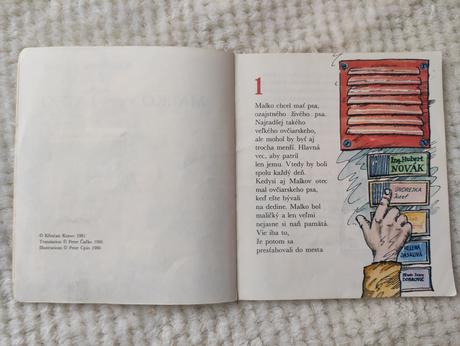 © Křesťan Kunev 1981
Translation © Peter Čačko 1986
Illustrations © Peter Cpin 1986
1
Maľko chcel mať psa,
ozajstného živého psa.
Najradšej takého
veľkého ovčiarskeho,
ale mohol by byť aj
trocha menší. Hlavná
vec, aby patril
len jemu. Vtedy by boli
spolu každý deň.
Kedysi aj Maľkov otec
mal ovčiarskeho psa,
keď ešte bývali
na dedine. Maľko bol
maličký a len veľmi
nejasne si naň pamätá.
Vie iba to,
že potom sa
presťahovali do mesta
Ing. Hubert
NOVÁK
ONDREJKA
Jozef
HELENA
JASKOVÁ
DUBROVIČ